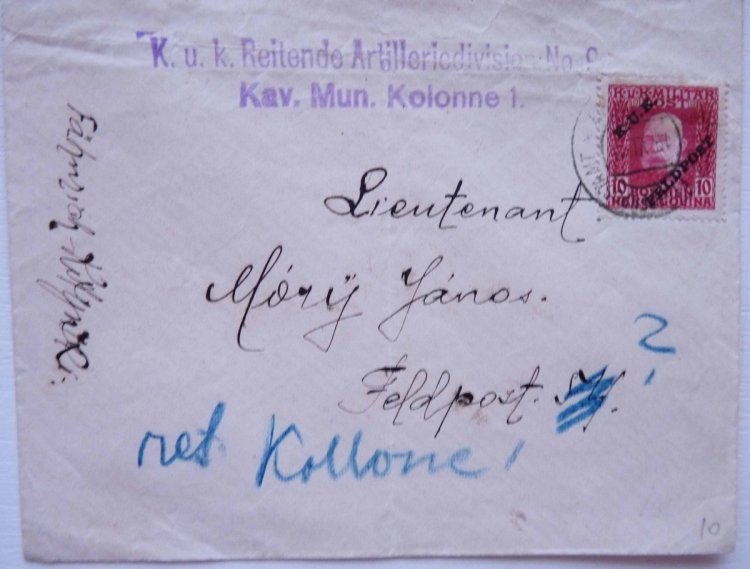 K. u. k. Reitende Artilleriedivision No. 9
Kav. Mun. Kolonne 1.
K.u.K. MILITÄR
POST
K.U.K.
FELDPOST
10 10
BOSNIEN
HERCEGOVINA
AMT
Lieutenant
Mórÿ János.
Feldpost.
?
ret Kollone 1
Fähnrich
10